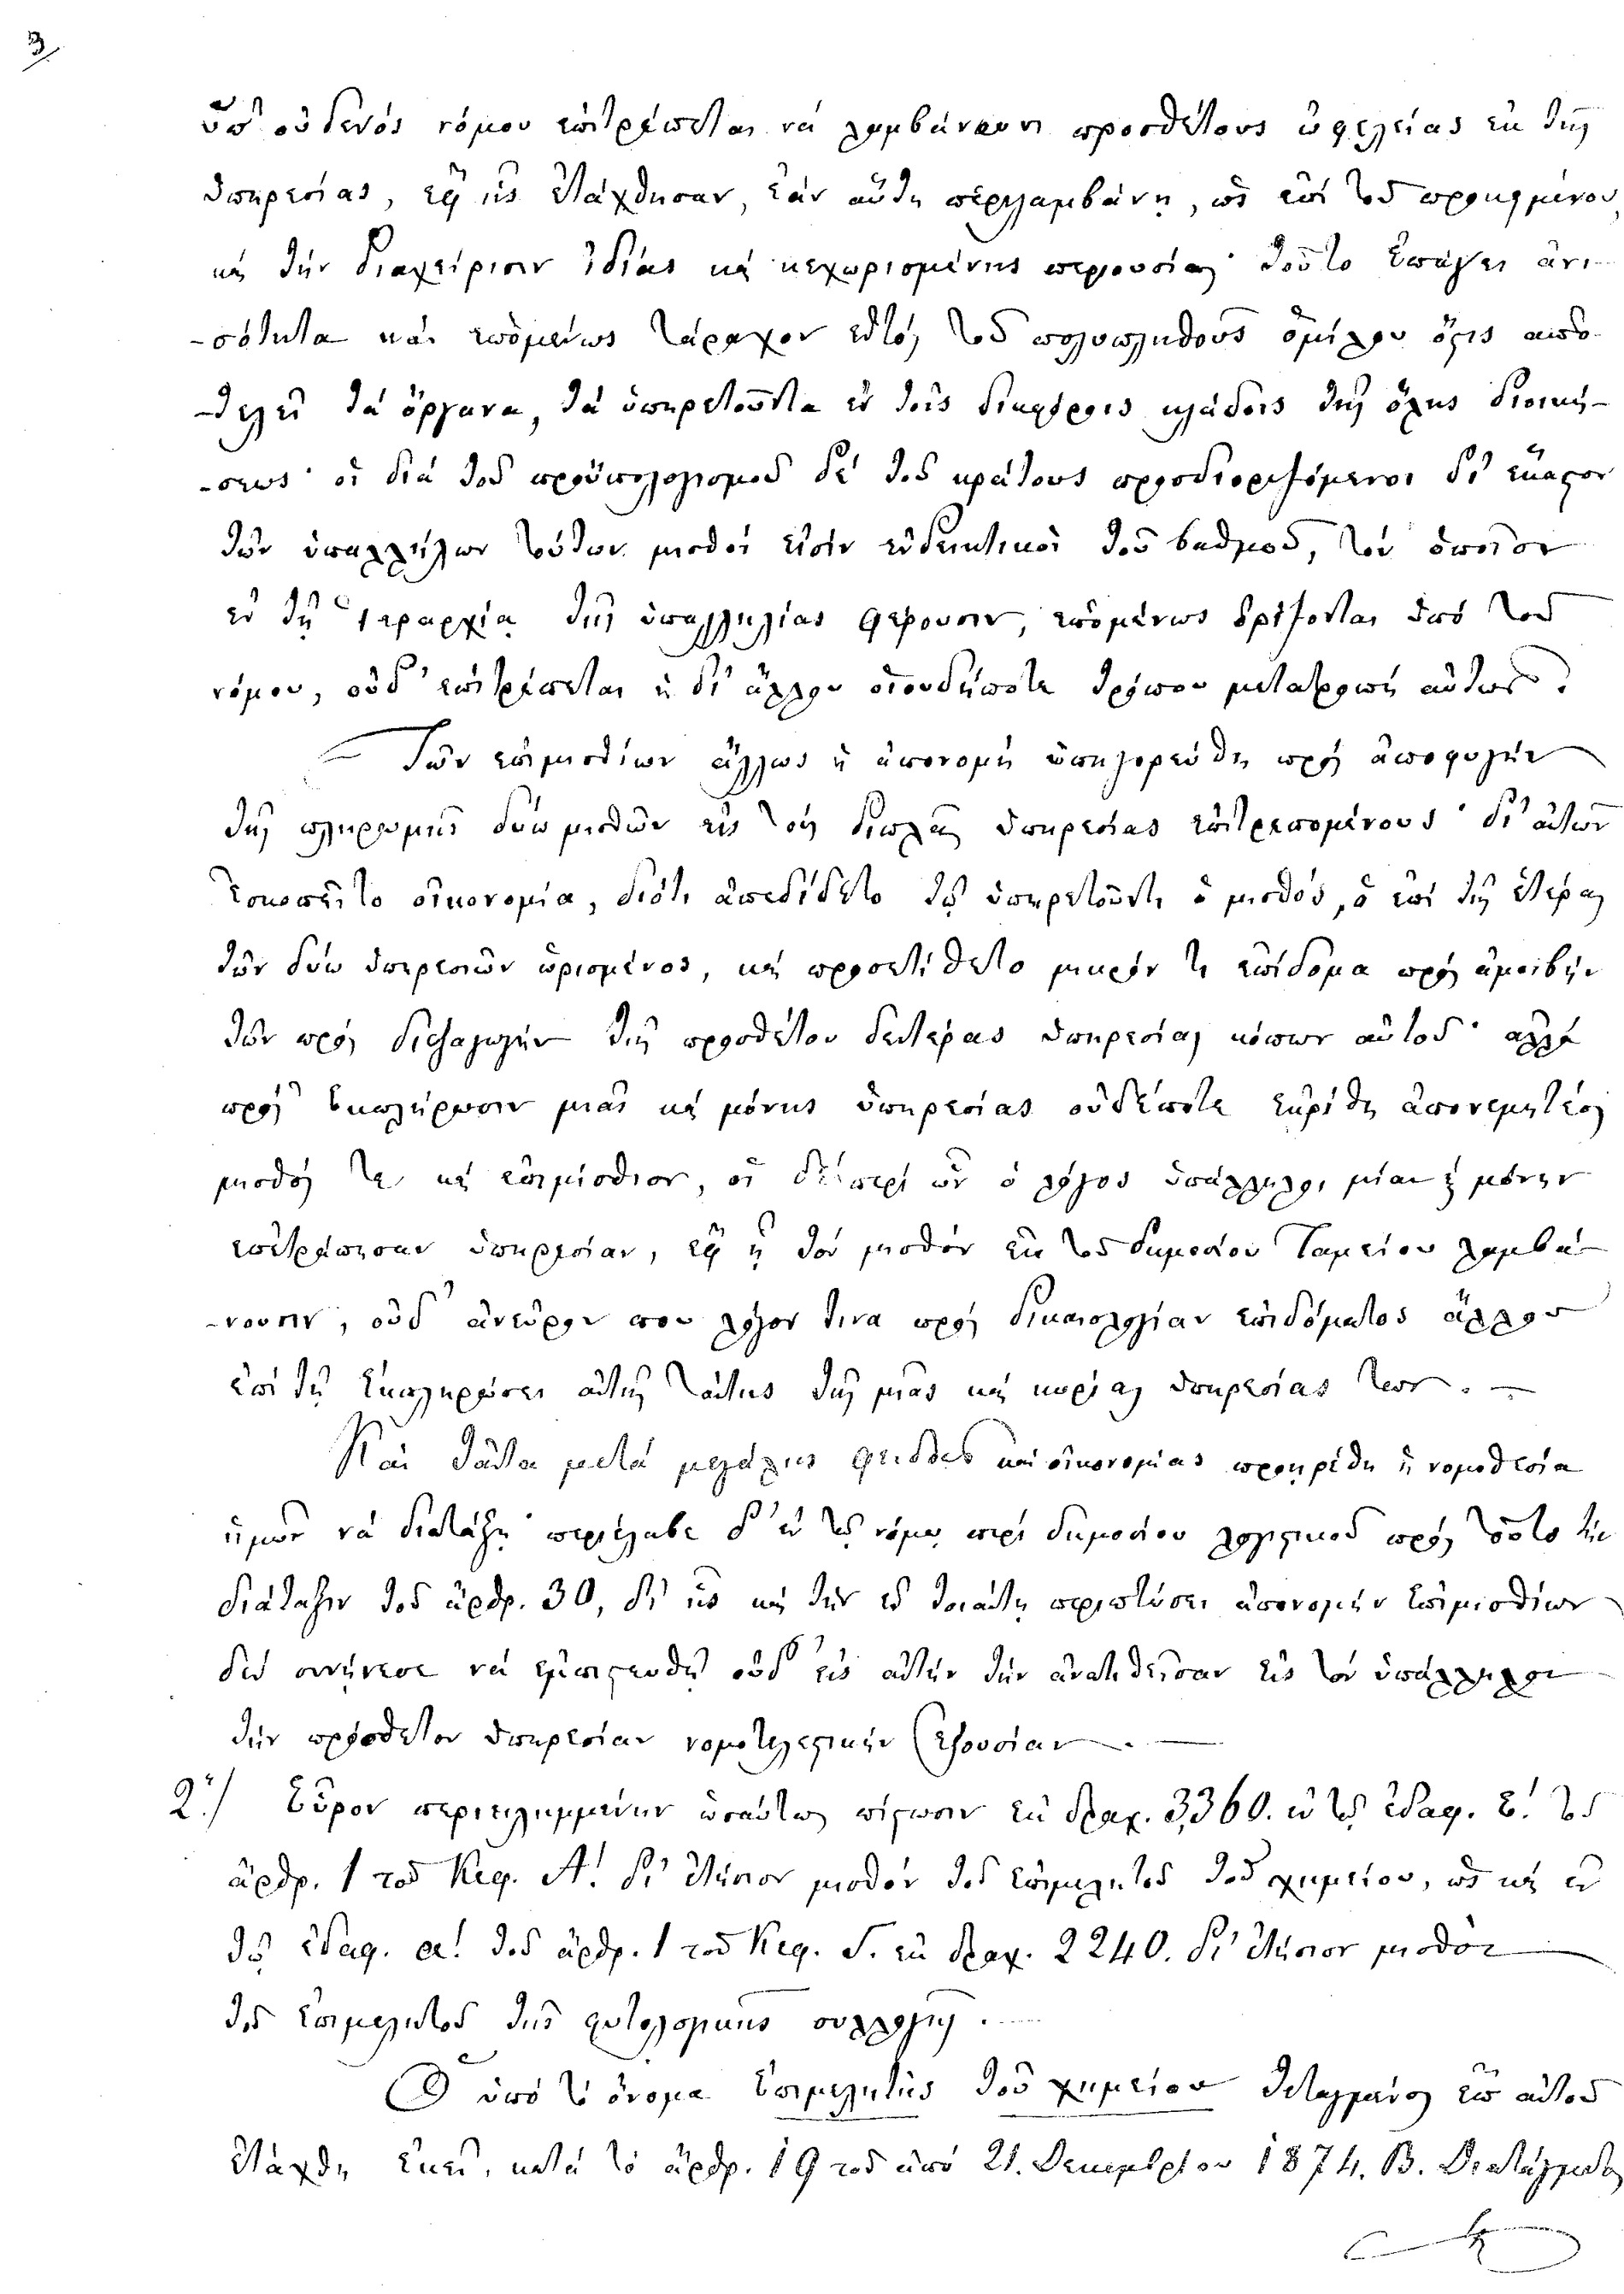 3
ὑπ' οὐδενός νόμου ἐπιτρέπεται νά λαμβάνωσι προσθέτους ὠφελείας ἐκ τῆς
ὑπηρεσίας, ἐφ' ἧς ἐτάχθησαν, ἐάν αὕτη περιλαμβάνῃ, ὡς ἐπί τοῦ προκειμένου,
καί τήν διαχείρισιν ἰδίας καί κεχωρισμένης περιουσίας· τοῦτο ἐπάγει ἀνι-
-σότητα καί ἑπομένως τάραχον ἐντός τοῦ πολυπληθοῦς ὁμίλου ὅστις ἀπο-
-τελεῖ τά ὄργανα, τά ὑπηρετοῦντα ἐν τοῖς διαφόροις κλάδοις τῆς ὅλης διοική-
-σεως· οἱ διά τοῦ προϋπολογισμοῦ δέ τοῦ κράτους προσδιοριζόμενοι δι' ἕκαστον
τῶν ὑπαλλήλων τούτων μισθοί εἰσίν ἐνδεικτικοί τοῦ βαθμοῦ, τόν ὁποῖον
ἐν τῇ ἱεραρχίᾳ τῆς ὑπαλληλίας φέρουσιν, ἑπομένως ὁρίζονται ὑπό τοῦ
νόμου, οὐδ' ἐπιτρέπεται ἡ δι' ἄλλου οἱουδήποτε τρόπου μετατροπή αὐτῶν.
Τῶν ἐπιμισθίων ἄλλως ἡ ἀπονομή ὑπηγορεύθη πρός ἀποφυγήν
τῆς πληρωμῆς δύω μισθῶν εἰς τούς διπλᾶς ὑπηρεσίας ἐπιτρεπομένους· δι' αὐτῶν
ἐσκοπεῖτο οἰκονομία, διότι ἀπεδίδετο τῷ ὑπηρετοῦντι ὁ μισθός, ὁ ἐπί τῆς ἑτέρας
τῶν δύω ὑπηρεσιῶν ὡρισμένος, καί προσετίθετο μικρόν τι ἐπίδομα πρός ἀμοιβήν
τῶν πρός διεξαγωγήν τῆς προσθέτου δευτέρας ὑπηρεσίας κόπων αὐτοῦ· ἀλλά
πρός ἐκπλήρωσιν μιᾶς καί μόνης ὑπηρεσίας οὐδέποτε ἐκρίθη ἀπονεμητέος
μισθός τε καί ἐπιμίσθιον, οἱ δέ περί ὧν ὁ λόγος ὑπάλληλοι μίαν καί μόνην
ἐπετράπησαν ὑπηρεσίαν, ἐφ' ᾗ τόν μισθόν ἐκ τοῦ δημοσίου Ταμείου λαμβά-
-νουσιν, οὐδ' ἀνεῦρον που λόγον τινα πρός δικαιολογίαν ἐπιδόματος ἄλλου
ἐπί τῇ ἐκπληρώσει αὐτῆς ταύτης τῆς μιᾶς καί κυρίας ὑπηρεσίας των. -
Καί ταῦτα μετά μεγάλης φειδοῦς καί οἰκονομίας προῃρέθη ἡ νομοθεσία
ἡμῶν νά διατάξῃ· περιέλαβε δ' ἐν τῷ νόμῳ περί δημοσίου λογιστικοῦ πρός τοῦτο τήν
διάταξιν τοῦ ἄρθρ. 30, δι' ἧς καί τήν ἐν τοιαύτῃ περιπτώσει ἀπονομήν ἐπιμισθίων
δέν συνῄνεσε νά ἐμπιστευθῇ οὐδ' εἰς αὐτήν τήν ἀνατιθεῖσαν εἰς τόν ὑπάλληλον
τήν πρόσθετον ὑπηρεσίαν νομοτελεστικήν ἐξουσίαν. -
2.) Εὗρον περιειλημμένην ὡσαύτως πίστωσιν ἐκ δραχ. 3,360. ἐν τῷ ἐδαφ. ϐ! τοῦ
ἄρθρ. 1 τοῦ Κεφ. Α! δι' ἐτήσιον μισθόν τοῦ ἐπιμελητοῦ τοῦ χημείου, ὡς καί ἐν
τῷ ἐδαφ. α! τοῦ ἄρθρ. 1 τοῦ Κεφ. Δ. ἐκ δραχ. 2240. δι' ἐτήσιον μισθόν
τοῦ ἐπιμελητοῦ τῆς φυτολογικῆς συλλογῆς.
Ὁ ὑπό τό ὄνομα ἐπιμελητής τοῦ χημείου τεταγμένος ἐπ' αὐτοῦ
ἐτάχθη ἐκεῖ, κατά τό ἄρθρ. 19 τοῦ ἀπό 21. Δεκεμβρίου 1874. Β. Διατάγματος